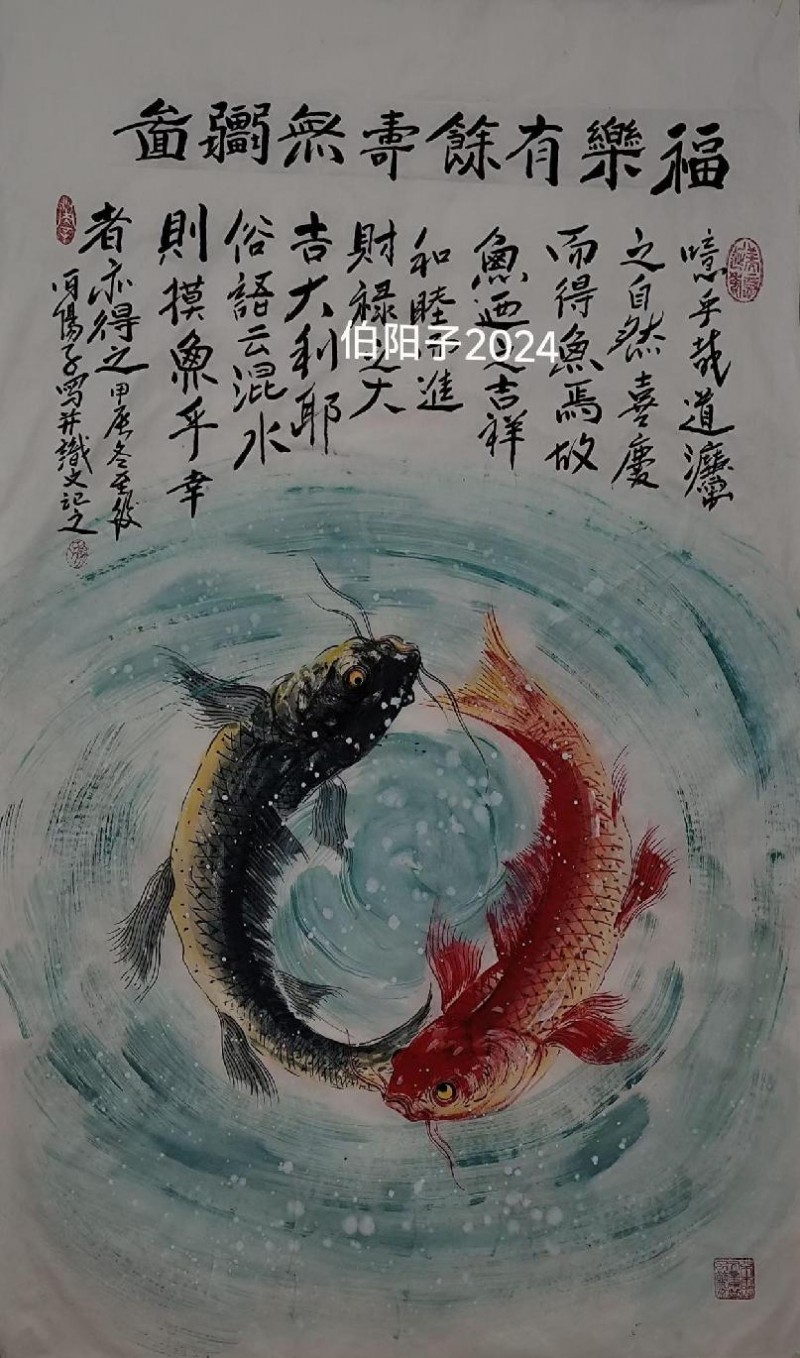 福樂有餘壽無疆
噫乎哉道灋
之自然喜慶
而得魚焉故
魚迺之吉祥
和睦進
財祿之大
吉大利耶
俗語云混水
則摸魚乎幸
者亦得之甲辰冬至後
陽子写并識文記之
伯阳子2024